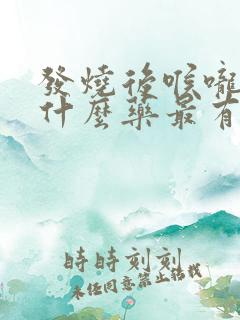 發燒後喉嚨
什麼藥最有
時時刻刻
未經同意禁止轉載